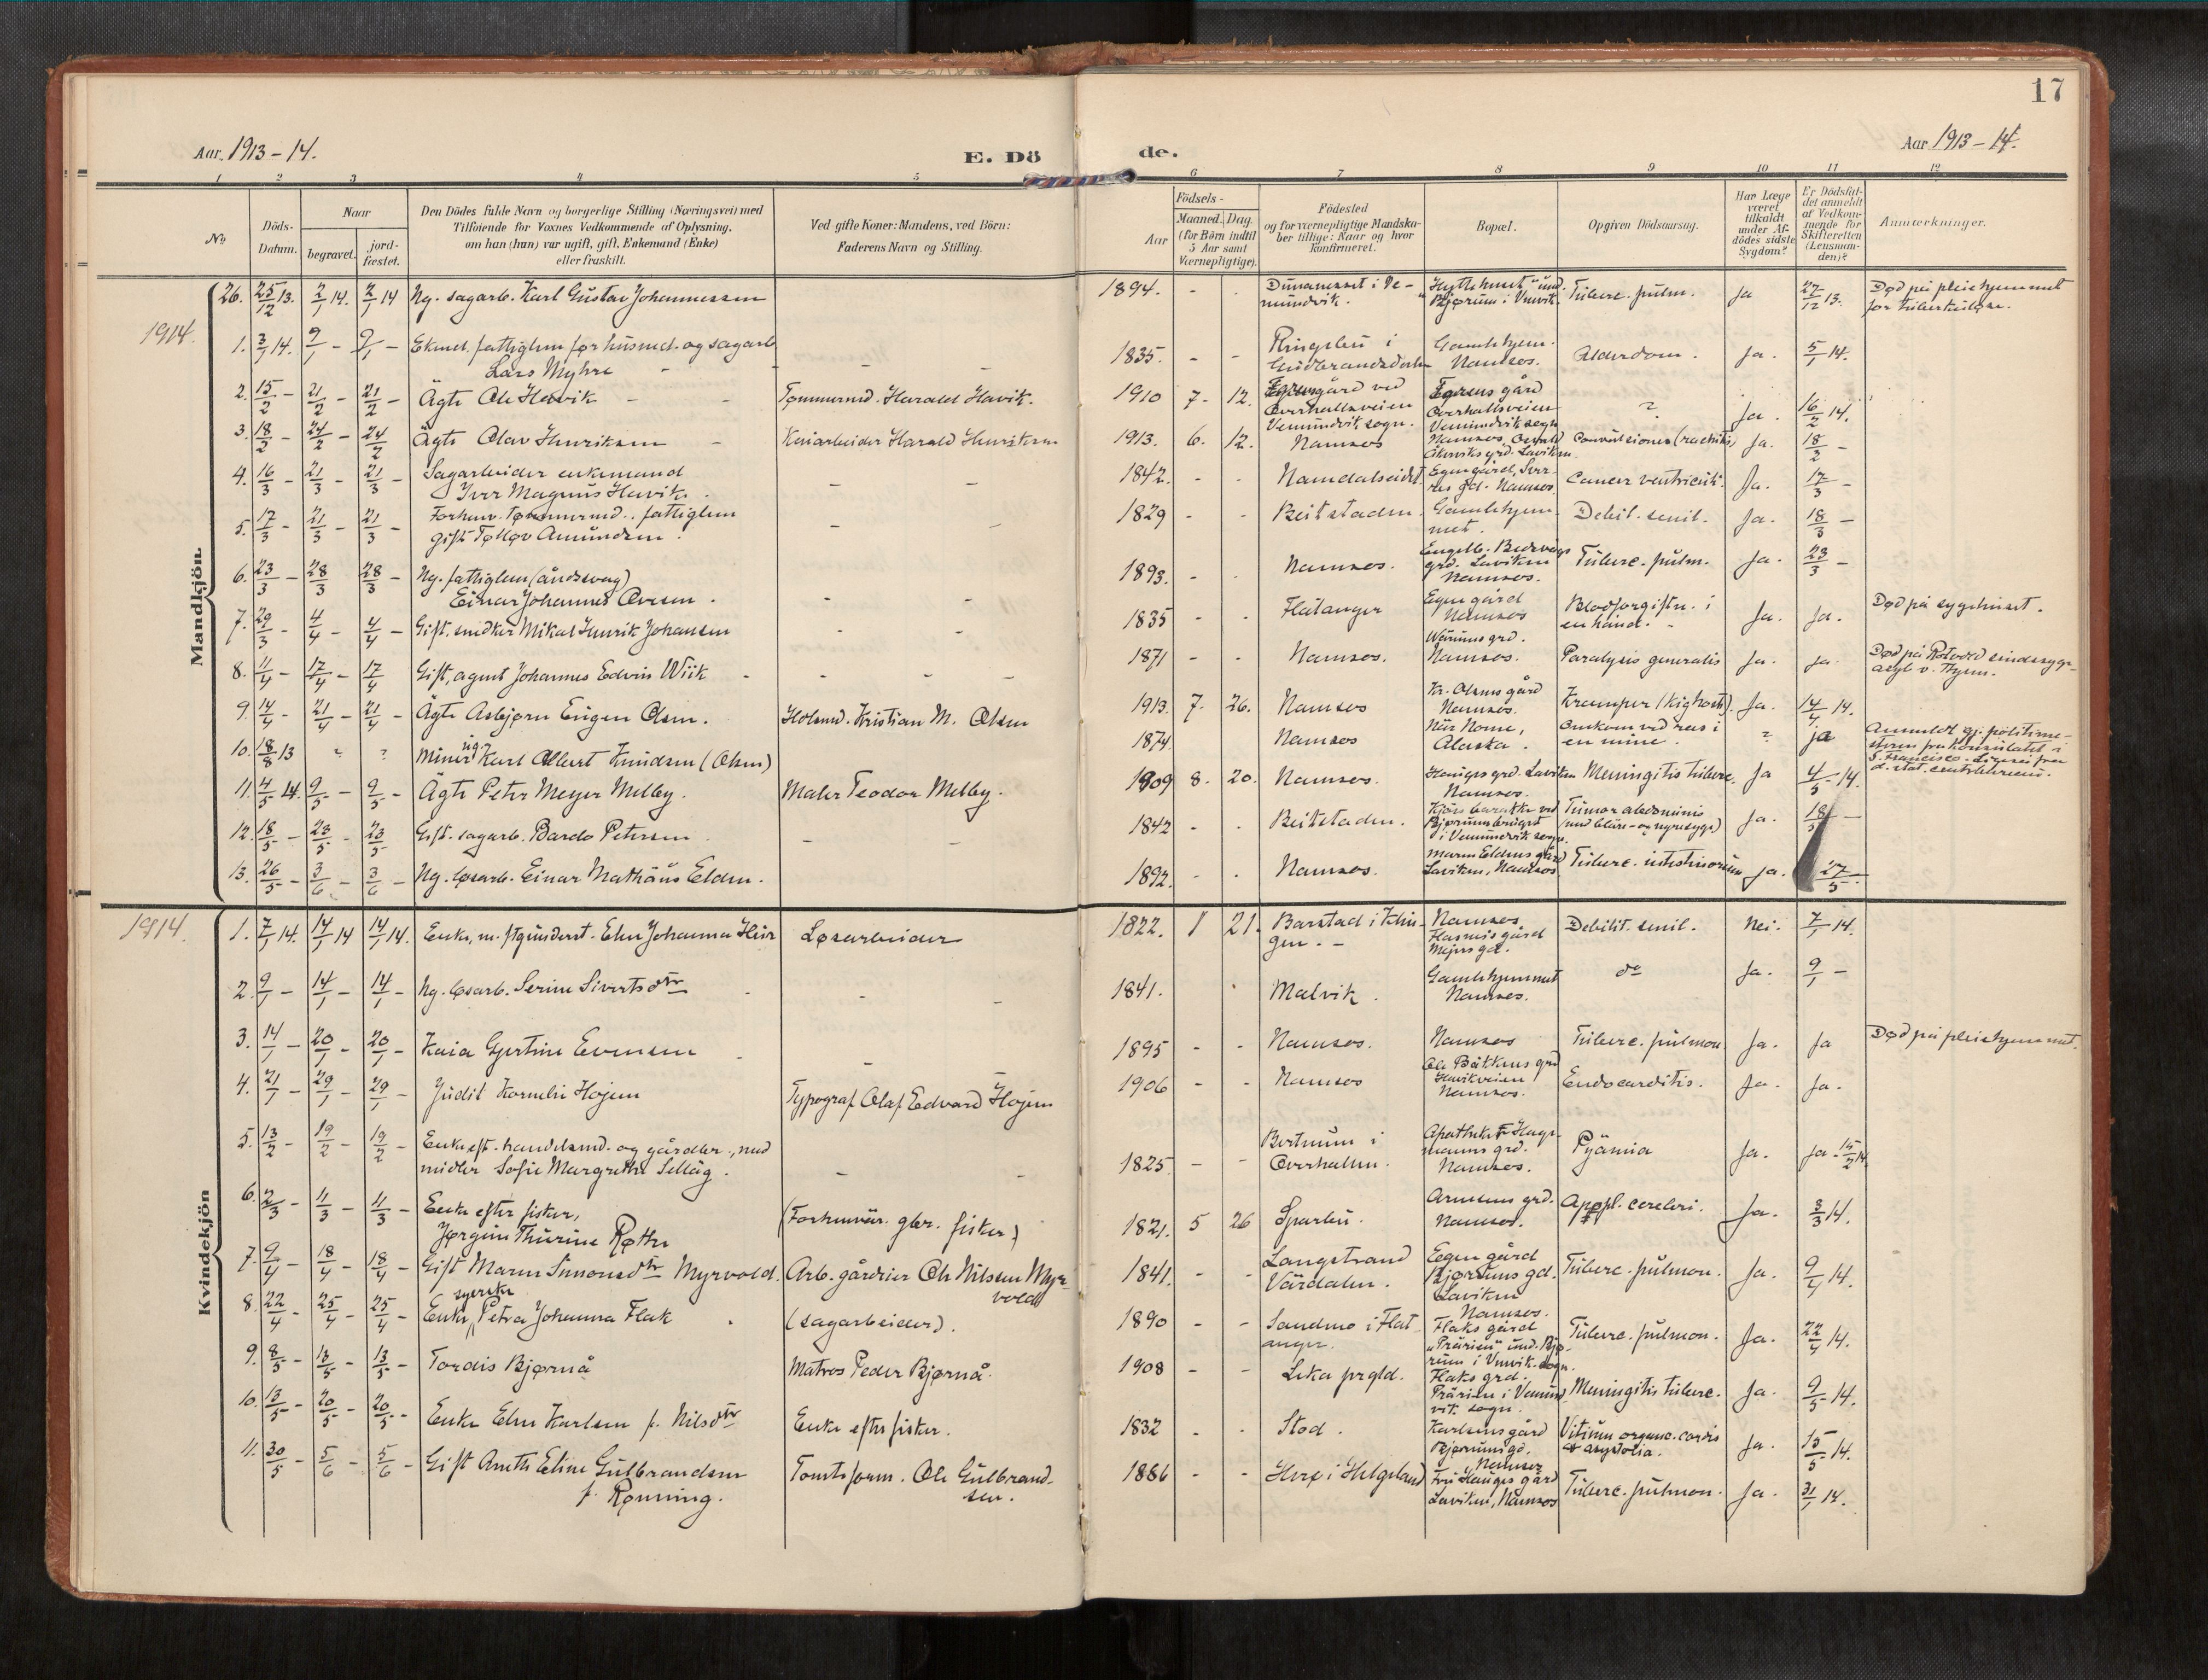 17
Aar 1913 - 14.
E. Dö
de.
Aar 1913 - 14.
1 2 3 4 5 6 7 8 9 10 11 12
No
Döds-Datum.
Naar
begravet.
jord-fæstet.
Den Dödes fulde Navn og borgerlige Stilling (Næringsvei) med
Tilföiende for Voxnes Vedkommende af Oplysning,
om han (hun) var ugift, gift, Enkemand (Enke)
eller fraskilt.
Ved gifte Koner: Mandens, ved Börn:
Faderens Navn og Stilling.
Födsels-
Aar
Maaned. Dag.
(for Börn indtil
5 Aar samt
Værnepligtige).
Födested
og for værnepligtige Mandska-
ber tillige: Naar og hvor
konfirmeret.
Bopæl.
Opgiven Dödsaarsag.
Har Læge
været
tilkaldt
under Af-
dödes sidste
Sygdom?
Er Dödsfal-
det anmeldt
af Vedkom-
mende for
Skifteretten
(Lensman-
den)?
Anmærkninger.
Mandkjön.
26. 25/12 13. 2/1 14. 2/1 14 Ug. sagarb. Karl Gustav Johannessen 1894. - - Dunanesset i Ve-mundvik. "Hyttehuset" und. Bjørum i Vmvik. Tuberc. pulm. Ja 27/12 13. Død på pleiehjemmet for tuberkuløse.
1914.
1. 3/1 14. 9/1 - 9/1 - Ekmd. fattiglem før husmd. og sagarb. Lars Myhre - - 1835. - - Ringebu i Gudbrandsdalen Gamlehjem. Namsos. Alderdom. Ja. 5/1 14.
2. 15/2 - 21/2 - 21/2 - Ägte Ole Havik - - Tømmermd. Harald Havik. 1910 7. 12. gård ved Overhallsveien Vemundvik sogn. gård Overhallsveien Vemundvik sogn ? Ja. 16/2 14.
3. 18/2 - 24/2 - 24/2 Ägte Olav Henriksen - Kaiarbeider Harald Henriksen 1913. 6. 12. Namsos Namsos, grd. Laviken Convulsiones (rachitis) Ja. 18/2 -
4. 16/3 - 21/3 - 21/3 - Sagarbeider enkemand Iver Magnus Havik. - - 1842. - - Namdalseidet Egen gård, gd. Namsos Cancer ventriculi. Ja. 17/3 -
5. 17/3 - 21/3 - 21/3 - Forhenv. tømmermd. fattiglem gift Tollev Amundsen. - - 1829 - - Beitstaden. Gamlehjem-met. Debil. senil. Ja. 18/3 -
6. 23/3 - 28/3 28/3 - Ug. fattiglem (åndssvag) Einar Johannes Ovesen. - - 1893. - - Namsos. grd. Laviken Namsos. Tuberc. pulm. Ja. 23/3 -
7. 29/3 - 4/4 - 4/4 - Gift. snedker Mikal Henrik Johansen - - 1835 - - Flatanger Egen gård Namsos Blodforgiftn. i en hånd. Ja. Ja. Død på sygehuset.
8. 11/4 - 17/4 - 17/4 Gift, agent Johannes Edvin Wiik - - - - 1871 - - Namsos. grd. Namsos. Paralysis generalis Ja. Ja. Død på Rotvold sindssyge-asyl v. Thjem.
9. 14/4 - 21/4 - 21/4 - Ägte Asbjørn Eugen Olsen. Kristian M. Olsen 1913. 7. 26. Namsos Kr. Olsens gård Namsos. Kramper (kighoste). Ja. 14/4 14.
10. 18/8 13 ? ? Miner ug. Karl Albert Knudsen (Olsen) 1874. Namsos När Nome, Alaska. Omkom ved ras i en mine. ? ja Anmeldt gj. politime-steren fra konsulatet i S. Francisco.
11. 4/5 14. 9/5 - 9/5 - Ägte Peter Meyer Melby. Maler Teodor Melby. 1909 8. 20. Namsos. Hauges grd. Laviken Namsos. Meningitis tuberc. Ja 4/5 14.
12. 18/5 - 23/5 - 23/5 Gift. sagarb. Bardo Petersen - - 1842 - - Beitstaden. barakke ved Bjørumsbruget i Vemundvik sogn. Tumor abdominis (med blære- og nyresyge) Ja. 18/5 -
13. 26/5 - 3/6 - 3/6 - Ug. løsarb. Einar Mathäus Elden. 1892. - - Namsos. Maren Eldens gård Laviken, Namsos Tuberc. intestinorum Ja. 27/5 -
Kvindekjön
1914.
1. 7/1 14. 14/1 14 14/1 14. Enke, m. Elen Johanna Løsarbeider 1822. 1 21. Barstad i Klin-gen. - Namsos gård Debilit. senil. Nei. 7/1 14.
2. 9/1 - 14/1 - 14/1 - Ug. løsarb. Serine Sivertsdtr - - - 1841. Malvik. Gamlehjemmet Namsos. do Ja. 9/1 -
3. 14/1 - 20/1 - 20/1 - Kaia Gjertine Evensen - - 1895 - - Namsos. Namsos Tuberc. pulmon. Ja. Ja Død på pleiehjemmet.
4. 21/1 - 29/1 - 29/1 - Judit Kornelie Højem Typograf Olaf Edvard Højem 1906 - - Namsos Ole Bakkens grd Havikveien Namsos. Endocarditis. Ja. Ja.
5. 13/2 - 19/2 - 19/2 - Enke eft. handelsmd. og gårdbr., med midler Sofie Margrethe Selläg. - - 1825 - - Bertnum i Overhallen. Apotheker grd. Namsos. Pyämia Ja. Ja. 14
6. 2/3 - 11/3 - 11/3 - Enke efter fisker, Jørgine Thurine Røthe (Forhenvär. gbr. fisker) 1821. 5 26 Sparbu. Arnesens grd. Namsos. Appopl. cerebri. Ja. 3/3 14.
7. 9/4 - 18/4 - 18/4 - Gift Maren Simonsdtr Myrvold. Arb. gårdeier Ole Nilsen Myr-vold 1841. - - Langstrand Värdalen. Egen gård Bjørums gd. Laviken Namsos. Tuberc. pulmon. Ja. 9/4 14.
8. 22/4 - 25/4 - 25/4 - Enke, syerske Petra Johanna Flak (sagarbeider). 1890 - - Sandmo i Flat-anger. Flaks gård "Prärien" und. Bjø-rum i Vmvik. sogn. Tuberc. pulmon. Ja. 22/4 14.
9. 8/5 - 13/5 - 13/5 - Tordis Bjørnå Matros Peder Bjørnå. 1908 - - Leka prgld. Flaks grd. Prärien i Vemund-vik. sogn. Meningitis tuberc. Ja. 9/5 14.
10. 13/5 - 20/5 - 20/5 - Enke Elen Karlsen f. Nilsdtr Enke efter fisker. 1832 - - Stod. Karlsens gård Bjørums gd. Namsos Vitium organ. cordis & asystolia. Ja. 15/5 14.
11. 30/5 - 5/6 - 5/6 - Gift Anetta Eline Gulbrandsen f. Rønning. Tomteform. Ole Gulbrand-sen. 1886 - - Herø i Helgeland Fru Hauges gård Laviken, Namsos Tuberc. pulmon. Ja. 31/ 14.